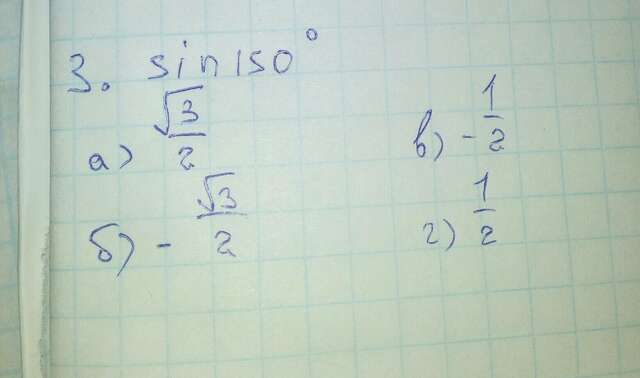 3. sin 150°
а) √3/2
в) -1/2
б) - √3/2
г) 1/2